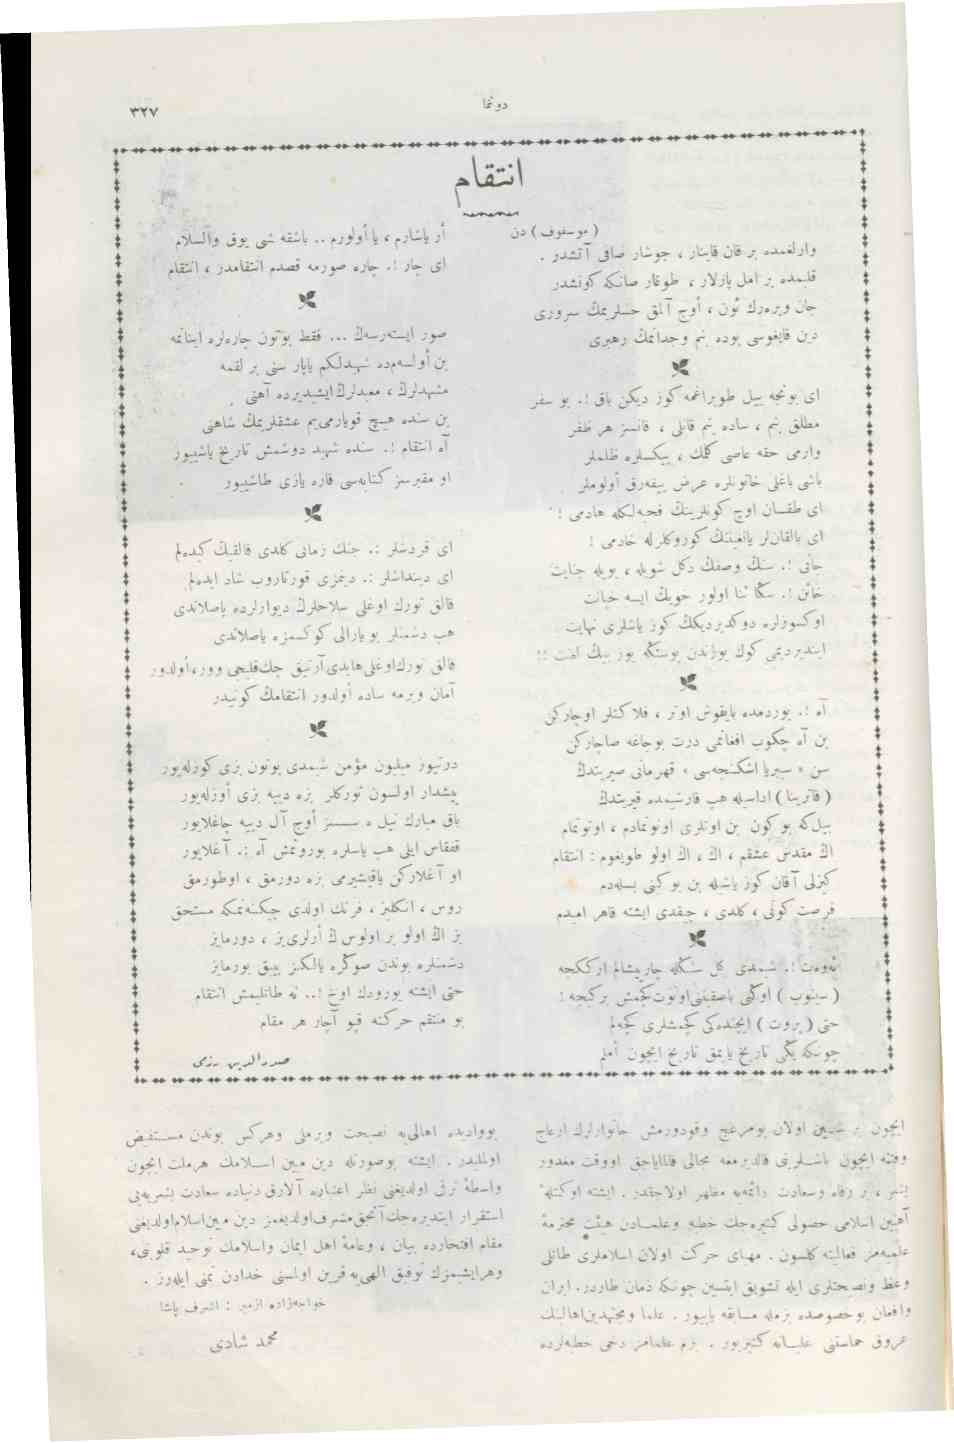 دونما
٣٢٧
انتقام
( موسقوف ) دن
وارلغمده بر قان قاینار ، جوشار صافی آتشدر .
قلبمده بر امل پارلار ، طوغار صانکه کونشدر
جان ویره‌رك ئون ، أوج آلمق حسلریمك سروری
دین قایغوسی بوده بنم وجدانمك رهبری
ای بونجه ییل طوپراغمه کوز دیکن باق !. بو سفر
مطلق بنم ، ساده بنم قانلی ، قانسز هر ظفر
وارمی حقه عاصی کلمك ، بیکسلره ظلملر
باشی باغلی خاتونلره عرض ییقه‌رق أولوملر
ای طقسان اوچ کونلرینك قحبه‌لکله هادمی !
ای بالقانلر یانغیننك کوروکلرله خادمی !
جانی !. سنك وصفك دکل شویله ، بویله جنایت
خائن !. سکا ثنا اولور خویك ایسه خیانت
اوکسوزلره دوکدیردیکك کوز یاشلری نهایت
ایندیردیمی کوك یوزندن بوستکه یوز بیك لعنت !!
آه !. یوردمده بایقوش اوتر ، فلاکتلر اوچارکن
بن آه چکوب افغانمی درت بوجاغه صاچارکن
سن « سبریا اشکنجه‌سی » قهرمانی صیریتدك
( قاترینا ) اداسیله هپ قارشیمده قیریتدك
بیل‌که بو کون بن اونلری اونوتمادم ، اونوتمام
اك مقدس عشقم ، اك ، اك اولو طویغوم : انتقام
کیزلی آقان کوز یاشیله بن بو کینی بسله‌دم
فرصت کونی ، کلدی ، چیقدی ایشته قاهر امیدم
ئه‌وه‌ت !. شیمدی کل سنکله چارپیشالم ارککجه
( سینوب ) اوکنی باصقیننی اونوت کچمش بر کیجه !
حتی ( پروت ) ایچنده‌کی کچمشلری کچه‌لم
چونکه یکی تاریخ یاپمق تاریخ ایچون أملم
أر یاشارم ، یا أولورم .. باشقه شی یوق والسلام
ای چار !. چاره صورمه قصدم انتقامدر ، انتقام
صور ایسترسه‌ك ... فقط بوتون چاره‌لره اینانمه
بن أولسه‌مده شهیدلکم یاپار سنی بر لقمه
مشهدلرك ، معبدلرك ایشیدیرده آهنی
بن سنده هیچ قویارمی‌یم عشقلریمك شاهنی
آه انتقام !. سنده شهید دوشمش تاریخ یاشییور
او مقبرسز کتابه‌سی قاره یازی طاشییور
ای قردشلر :. جنك زمانی کلدی قالقیك کیده‌لم
ای دینداشلر :. دیمزی قورتاروب شاد ایده‌لم
قالق تورك اوغلی سلاحلرك دیوارلرده پاصلاندی
هپ دشمنلر بو یارالی کوکسمزه یاصلاندی
قالق تورك اوغلی هایدی آرتیق چك قلیجی وور، أولدور
آمان ویرمه ساده أولدور انتقامك کونیدر
درتیوز میلیون مؤمن شیمدی بوتون بزی کوزله‌یور
پیشدار اولسون تورکلر بزه دییه بزی أوزله‌یور
باق مبارك نیل ه سسسز أوج آل دییه چاغلایور
قفقاس ایلی هپ یاسلره بورونمش آه :. آغلایور
او آغلارکن یاقیشیرمی بزه دورمق ، اوطورمق
روس ، انکلیز ، فرنك اولدی چیکنه‌نمکه مستحق
بز اك اولو بر اولوس ك أرلری‌یز ، دورمایز
دشمنلره بوندن صوکره یالکز ییق یورمایز
حتی ایشته یورودك اوخ !.. نه طاتلیمش انتقام
بو منتقم حرکته قپو آچار هر مقام
صدرالدین رزمی
ایچون بر شین اولان بومزعج وقودورمش جانوارلرك ازعاج
وفتنه ایچون باشلرینی قالدیرمغه مجالی قالمایاجق اووقت مغدور
بشر ، بر رفاه وسعادت دائمه‌یه مظهر اولاجقدر . ایشته اوکتله‌ٔ
آهنین اسلامی حصولی کتیره‌جك خطبه وعلمادن هیئت محترمهٔ
علمیه‌مز فعالیته کلسون . مهیای حرکت اولان اسلاملری طاتلی
وعظ ونصیحتلری ایله تشویق ایتسین چونکه زمان طاردر. ایران
وافغان بوخصوصده بزمله مسابقه یاپیور . علما ومجتهدین اهالینك
عروق حماستنی غلیانه کتیریور . بزم علمامز دخی خطبه‌لرده
بووادیده اهالی‌یه نصیحت ویرملی وهرکس بوندن مستفیض
اولملیدر . ایشته بوصورتله دین مبین اسلامك هرملت ایچون
واسطهٔ ترقی اولدیغنی نظر اعتباره آلارق دنیاده سعادت بشریه‌یی
استقرار ایتدیره‌جك آنجق مشرف اولدیغمز دین مبین اسلام اولدیغنی
مقام افتخارده بیان ، وعامهٔ اهل ایمان واسلامك توحید قلوبنی،
وهرایشیمزك توفیق الهی‌یه قرین اولمسنی خدادن تمنی ایله‌رز .
خواجه‌زاده ازمیر : اشرف پاشا
محمد شادی